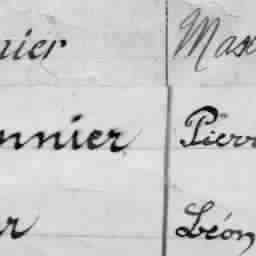 nier Max
nnier Pierr
r Léon